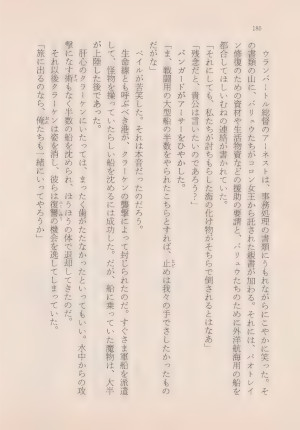 190
ウランバートル総督のアーネストは、事務処理の書類にうもれながらにこやかに笑った。そ
の書類の山に、バリュウたちがミロン女王から渡された親書が加わる。それには、パオトレイ
ン修復のための資材や生活物資などの援助の要請と、バリュウたちのために外洋航海用の船を
都合してほしいむねの連絡が書かれていた。
「それにしても、私たちが討ちもらした齒の化け物がそちらで倒されるとはなあ」
「残念だと、貴公は言いたいのであろう?」
バンガードがアーサーをひやかした。
「ま、戦闘用の大型船の半数をやられたこちらとすれば、止めは我々の手でさしたかったもの
だがな」
ベイルが苦笑した。それは本音だったのだろう。
生命線とも呼ぶべき港が、クラーケンの襲撃によって封じられたのだ。すぐさま軍船を派遣
して、怪物を操っていたらしい船を沈めるには成功した。だが、船に乗っていた魔物は、大半
が上陸した後であった。
肝心のクラーケンにいたっては、まったく歯がたたなかったといってもいい。水中からの攻
撃になす術もなく半数の船を沈められ、ほうほうの体で退却してきたのだ。
それ以後クラーケンは姿を消し、彼らは復讐の機会を逃してしまっていた。
「旅に出るのなら、俺たちも一緒にいってやろうか」